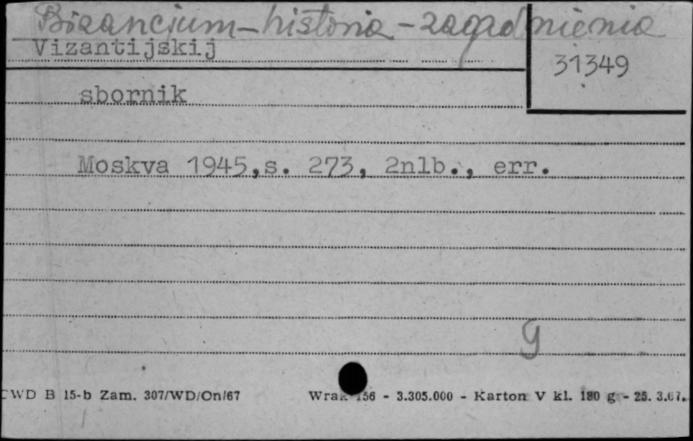 Bizancjum - historia - zagadnienia
Vizantijskij
31349
sbornik
Moskva 1945,s. 273, 2nlb., err.
g
CWD B 15-b Zam. 307/WD/On/67 - 3.305.000 - Karton V kl. 180 g - 25. 3.67.